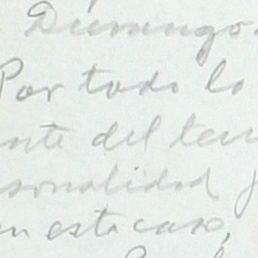 Durango.
Por todo lo
nte del ter
sonalidad
en este caso,